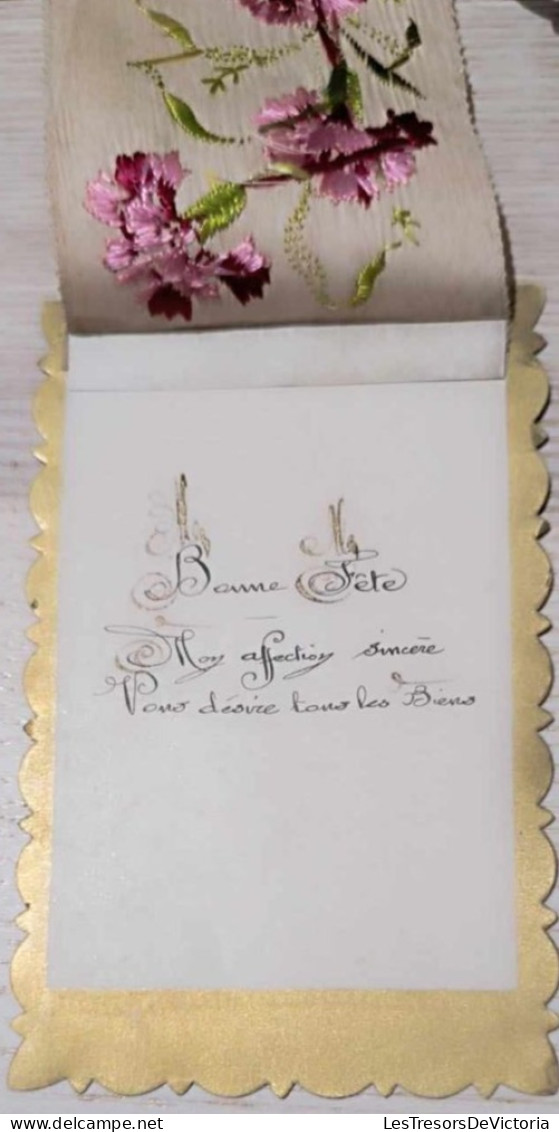 Bonne Fête
Mon affection sincère
Vous désire tous les Biens
LesTresorsDeVictoria